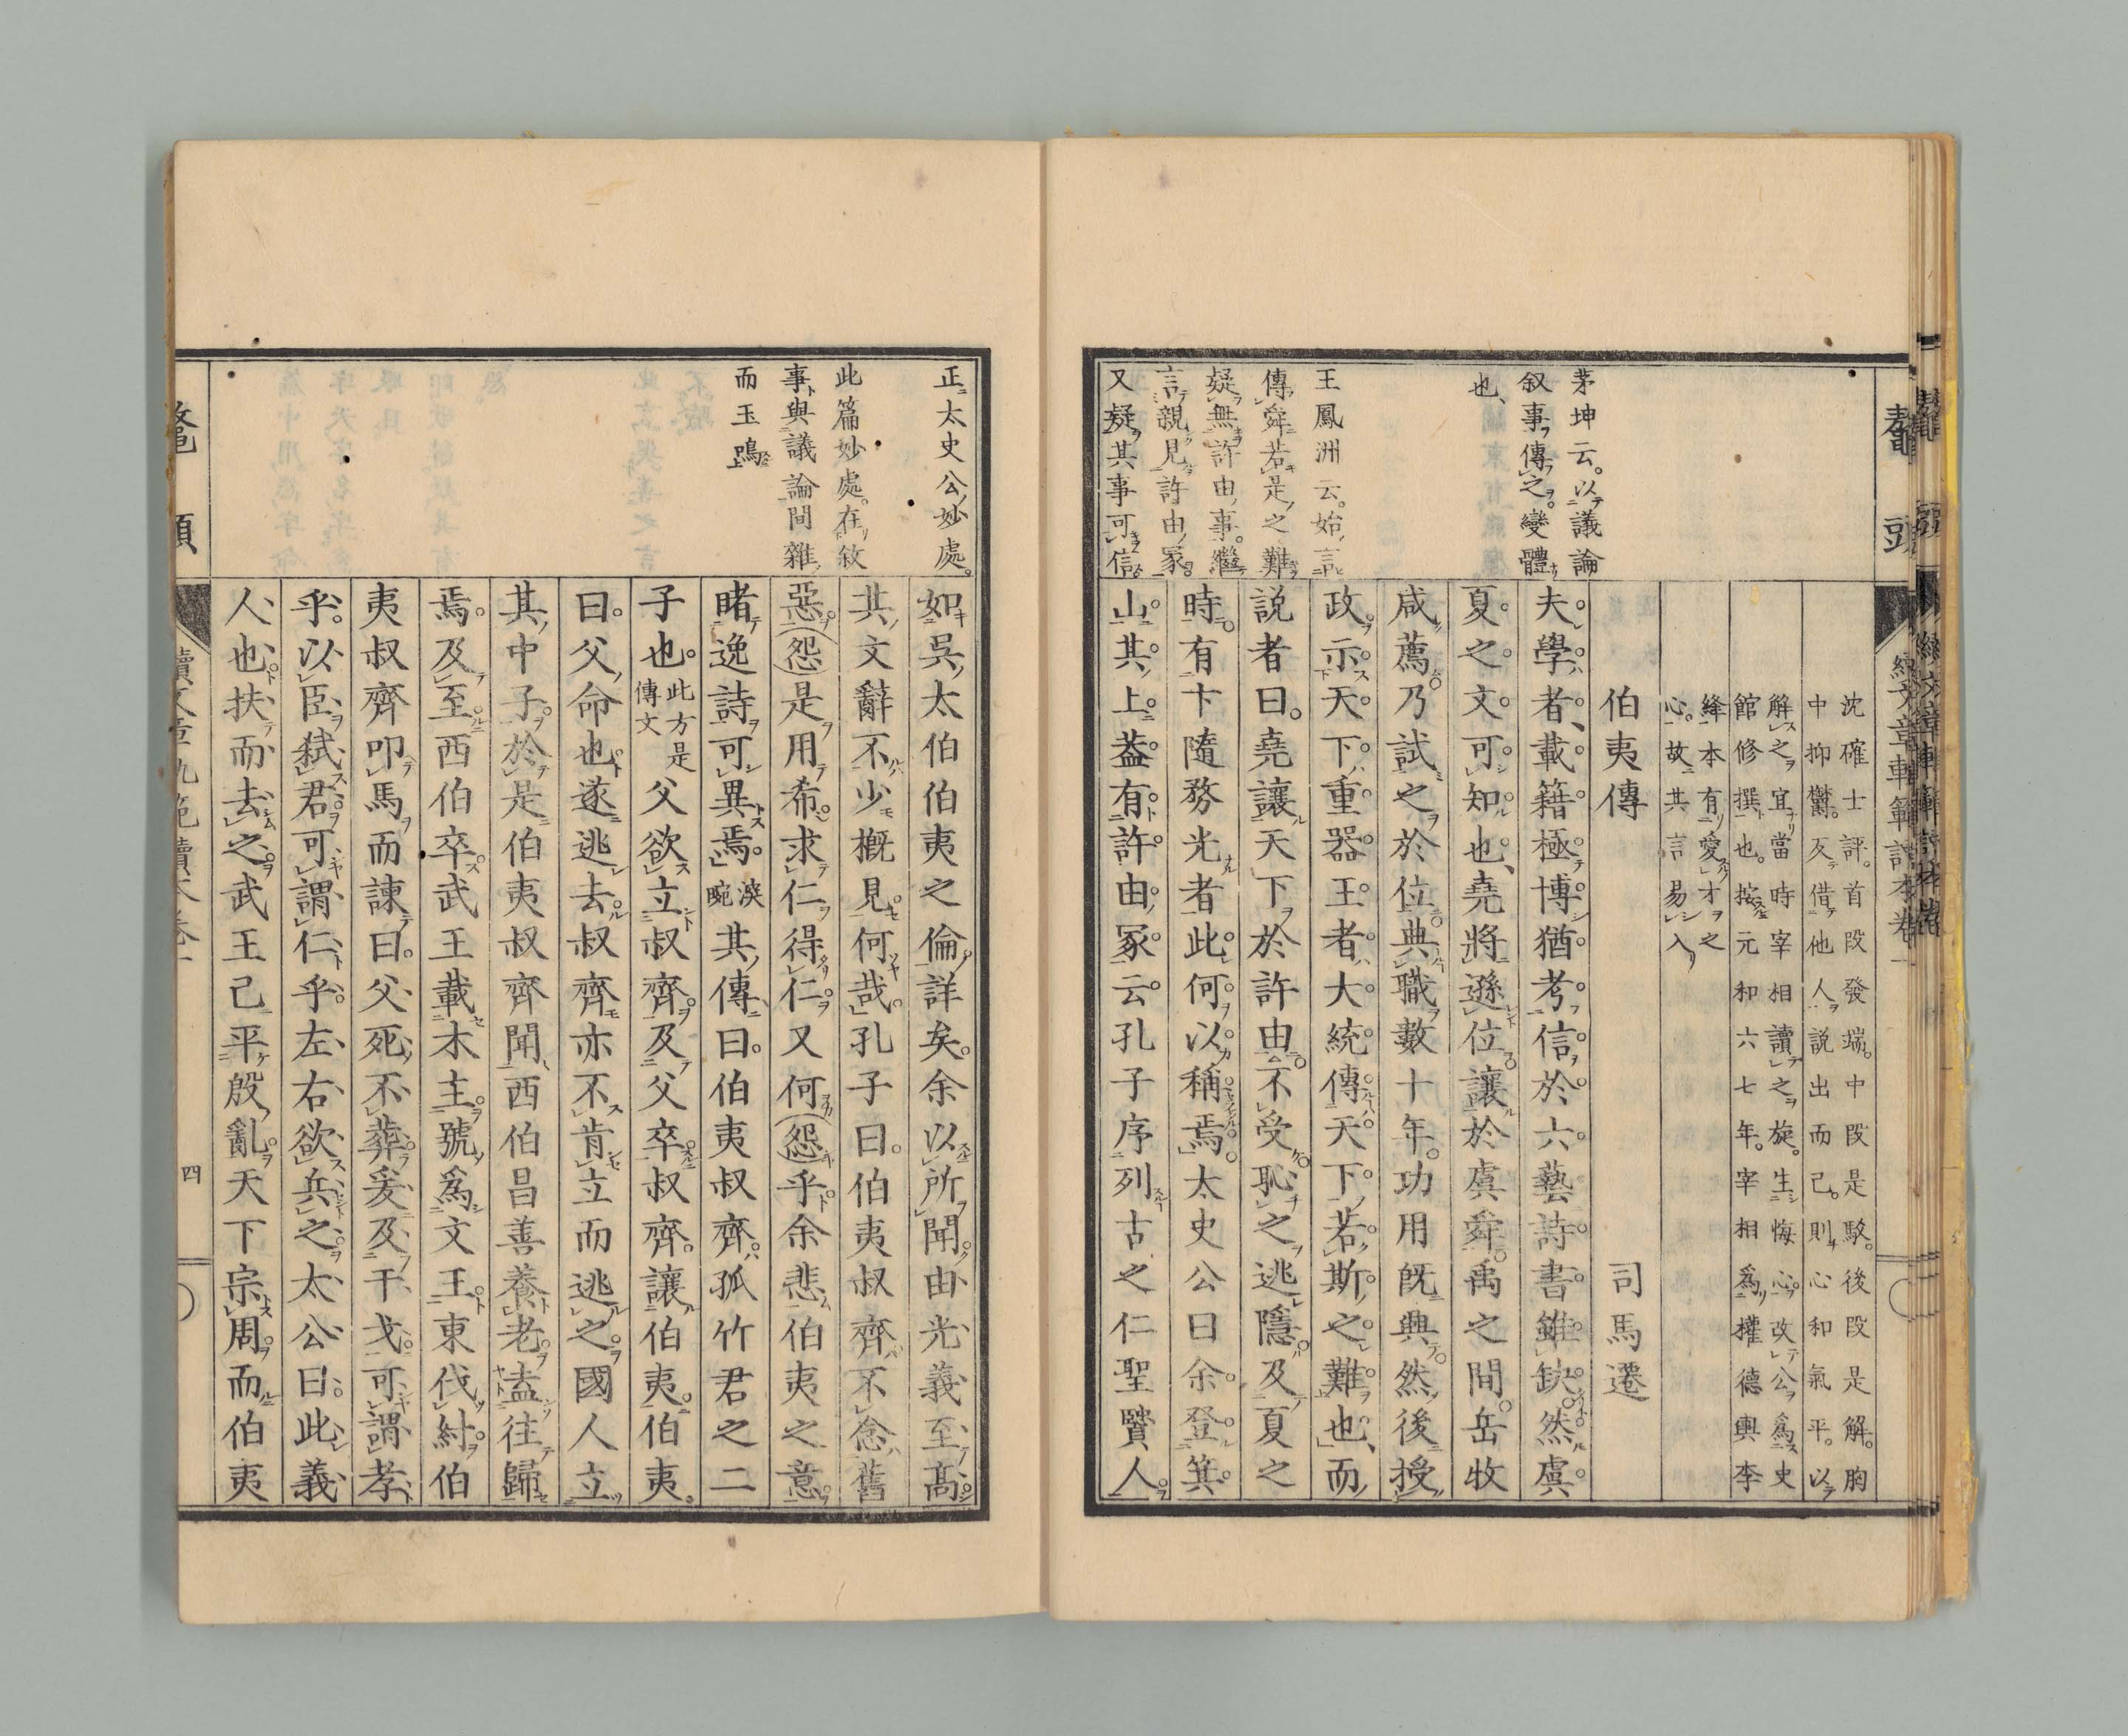 沈確士評。首段發端。中段是駁。後段是解。胸
中抑欝。反借他人説出而己。則心和氣平。以
解之。宜當時宰相讀之。旋生悔心。改公爲史
館修撰也。按元和六七年。宰相爲權德輿李
絳本有愛才之
心。故其言易入
伯夷傳　司馬遷
夫學者、載籍極博猶考信於六藝詩書雖缺然虞
夏之文可知也、堯將遜位讓於虞舜禹之間岳牧
咸薦乃試之於位典職數十年。功用既興然後授
政。示天下重器王者大統傳天下若斯之難也、而
説者曰。堯讓天下於許由不受恥之逃隱及夏之
時有卞隨務光者此何以稱焉。太史公曰余登箕
山其上葢有許由冢云。孔子序列古之仁聖賢人
茅坤云。以議論
叙事傳之。變體
也、
王鳳洲云。始言
傳舜若是之難
疑無許由事。繼
言親見許由冢
又疑其事可信
如呉太伯伯夷之倫詳矣。余以所聞由光義至髙
其文辭不少概見何哉。孔子曰。伯夷叔齊不念舊
惡怨是用希求仁得仁又何怨乎余悲伯夷之意
睹逸詩可異焉。渙畹其傳曰。伯夷叔齊孤竹君之二
子也。此方是傳文父欲立叔齊及父卒叔齊讓伯夷伯夷
曰。父命也遂逃去叔齊亦不肯立而逃之國人立
其中子於是伯夷叔齊聞西伯昌善養老盍往歸
焉。及至西伯卒武王載木主號爲文王東伐紂伯
夷叔齊叩馬而諫曰。父死不葬爰及干戈可謂孝
乎。以臣弑君可謂仁乎。左右欲兵之太公曰。此義
人也扶而去之武王己平殷亂天下宗周而伯夷
正太史公妙處。
此篇妙處。在敘
事與議論間雜
而玉鳴
四